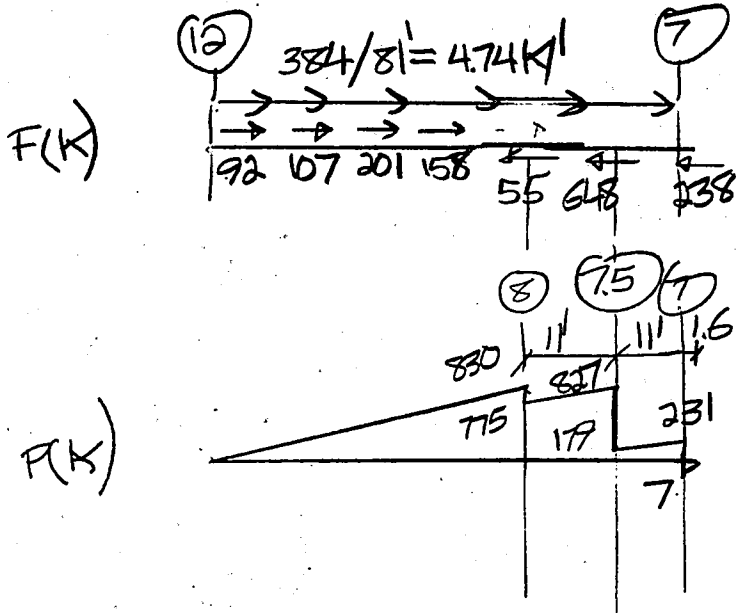 12 7
384/81'=4.74K/'
F(K)
92 107 201 158 55 648 238
8 7.5 7
11' 11' 1.6
830 827
775 179 231
P(K)
7